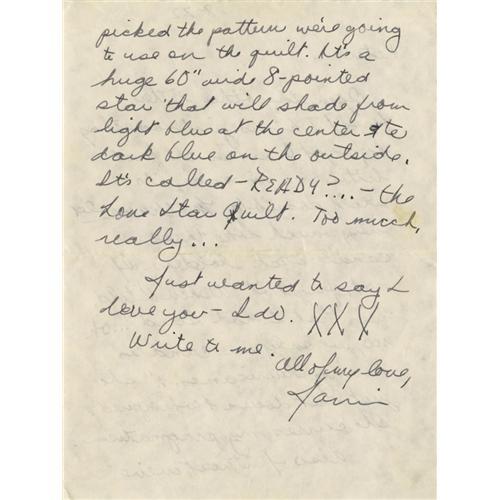 picked the pattern we're going
to use on the quilt. It's a
huge 60" wide 8-pointed
star that will shade from
light blue at the center to
dark blue on the outside.
It's called - READY?.... - the
Lone Star Quilt. Too much,
really...
Just wanted to say I
love you - I do. XXX
Write to me.
All of my love,